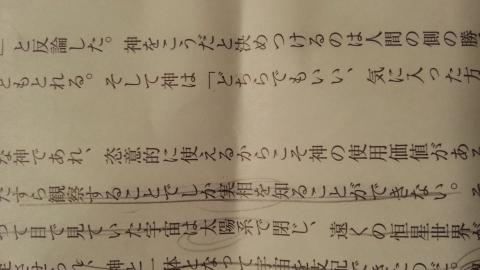 」と反論した。神をこうだと決めつけるのは人間の側の勝
ともとれる。そして神は「どちらでもいい、気に入った方
な神であれ、恣意的に使えるからこそ神の使用価値がある
たすら観察することでしか実相を知ることができない。そ
って目で見ていた宇宙は太陽系で閉じ、遠くの恒星世界が
神と一体となって宇宙を支配でき